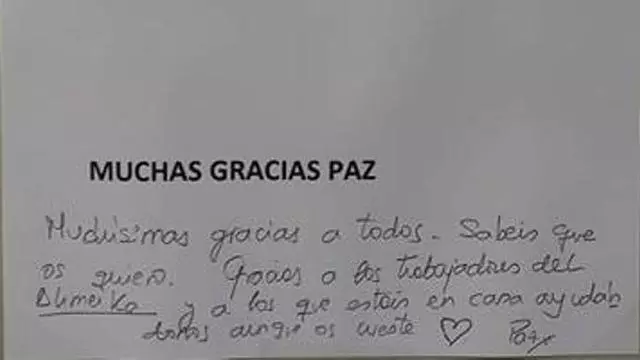 MUCHAS GRACIAS PAZ
Muchísimas gracias a todos. Sabeis que
os quiero. Gracias a los trabajadores del
y a los que estais en casa ayudán
donos aunque os cueste ♡ Paz